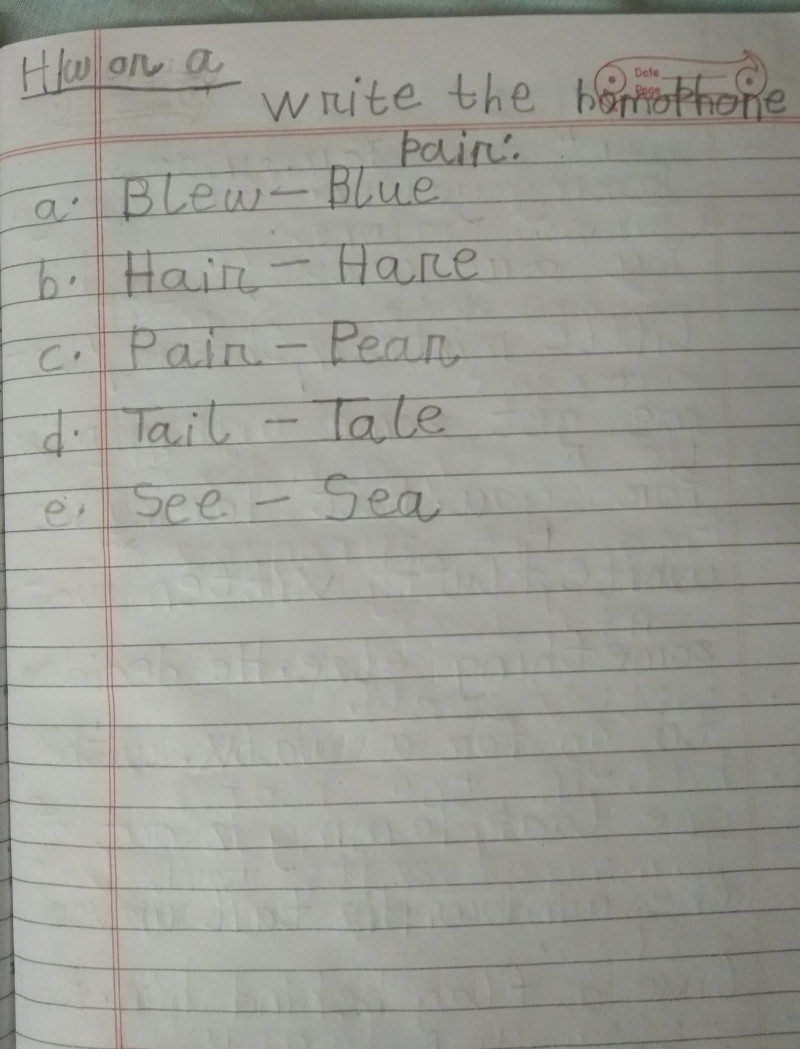 H/w on a
Date
Page
Write the homophone
pair:
a. Blew - Blue
b. Hair - Hare
c. Pair - Pear
d. Tail - Tale
e. See - Sea